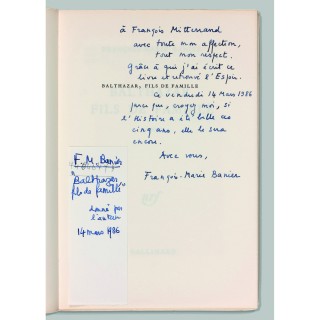 à François Mitterrand
avec toute mon affection,
tout mon respect.
Grâce à qui j'ai écrit ce
livre et retrouvé l'Espoir.
BALTHAZAR, FILS DE FAMILLE
Ce vendredi 14 Mars 1986
parce que, croyez moi, si
l'Histoire a été belle ces
cinq ans, elle le sera
encore.
Avec vous,
François-Marie Banier
F. M. Banier
"Balthazar
fils de famille"
donné par
l'auteur
14 mars 1986